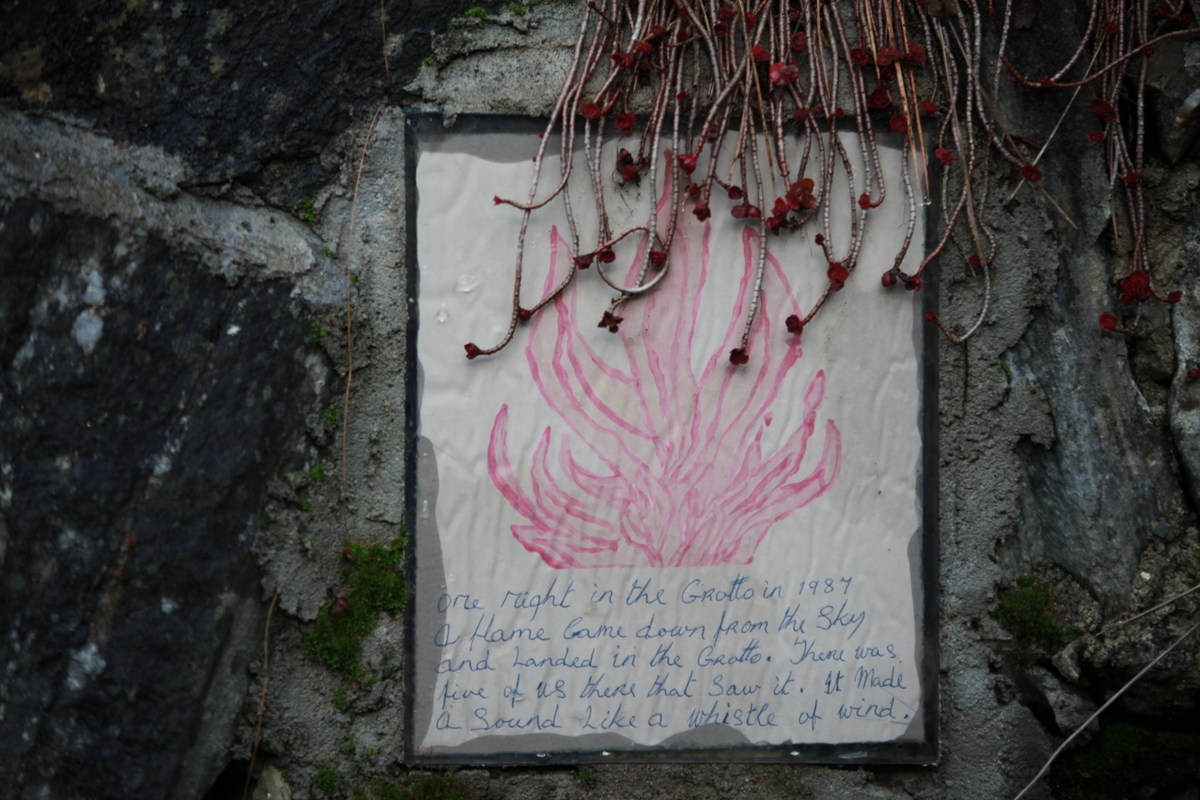 one night in the Grotto in 1987
A flame Came down from the Sky
and Landed in the Grotto. There was
five of us there that Saw it. It Made
a Sound Like a whistle of wind.